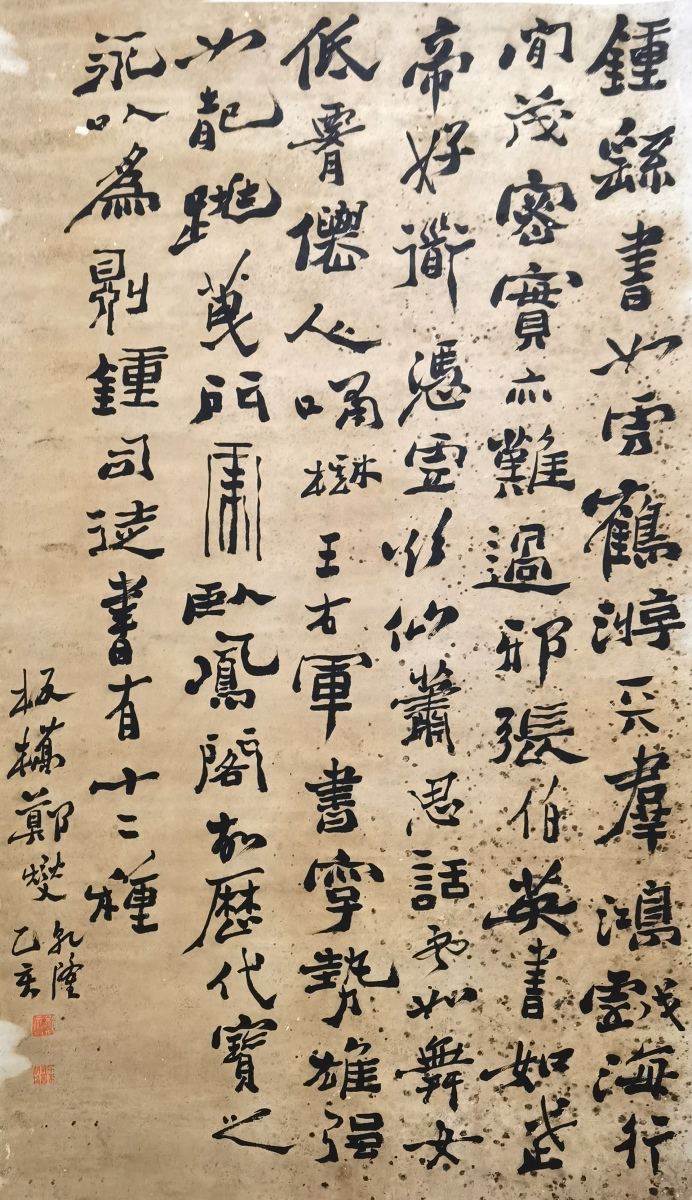 鍾繇書如雲鶴游天羣鴻戲海行
間茂密實亦難過耶張伯英書如武
帝好道憑虛欲仙蕭思話書如舞女
低腰僊人嘯樹王右軍書字勢雄强
如龍跳天門虎臥鳳閣故歷代寶之
永以為訓鍾司徒書有十二種
板橋鄭燮
乾隆
乙亥